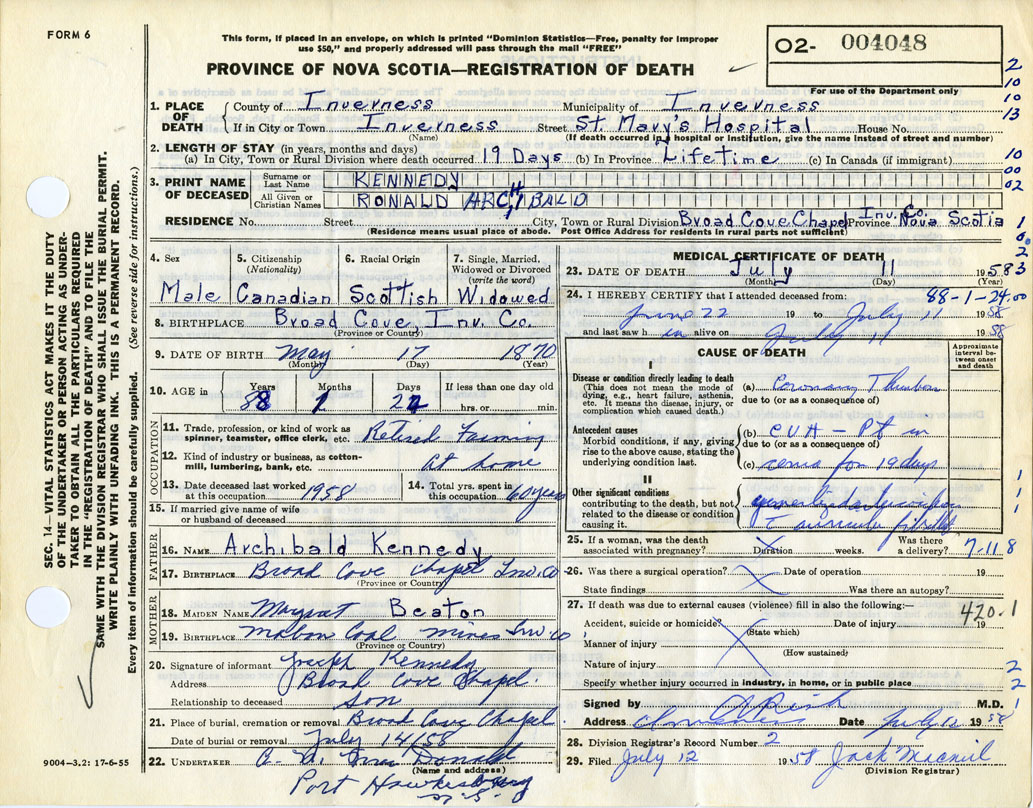 FORM 6
This form, if placed in an envelope, on which is printed "Dominion Statistics—Free, penalty for improper
use $50," and properly addressed will pass through the mail "FREE"
PROVINCE OF NOVA SCOTIA—REGISTRATION OF DEATH
02- 004048
For use of the Department only
SEC. 14—VITAL STATISTICS ACT MAKES IT THE DUTY
OF THE UNDERTAKER OR PERSON ACTING AS UNDER-
TAKER TO OBTAIN ALL THE PARTICULARS REQUIRED
IN THE "REGISTRATION OF DEATH" AND TO FILE THE
SAME WITH THE DIVISION REGISTRAR WHO SHALL ISSUE THE BURIAL PERMIT.
WRITE PLAINLY WITH UNFADING INK. THIS IS A PERMANENT RECORD.
Every item of information should be carefully supplied. (See reverse side for instructions.)
1. PLACE OF DEATH
County of Inverness Municipality of Inverness
If in City or Town Inverness Street St. Mary's Hospital House No.
(Name) (If death occurred in a hospital or Institution, give the name instead of street and number)
2. LENGTH OF STAY (in years, months and days)
(a) In City, Town or Rural Division where death occurred 19 Days (b) In Province Lifetime (c) In Canada (if immigrant)
3. PRINT NAME OF DECEASED
Surname or Last Name KENNEDY
All Given or Christian Names RONALD ARCHIBALD
RESIDENCE No. Street City, Town or Rural Division Broad Cove Chapel Inv. Co. Province Nova Scotia
(Residence means usual place of abode. Post Office Address for residents in rural parts not sufficient)
2
10
10
13
10
00
02
1
0
2
3
4. Sex 5. Citizenship (Nationality) 6. Racial Origin 7. Single, Married, Widowed or Divorced (write the word)
Male Canadian Scottish Widowed
8. BIRTHPLACE Broad Cove, Inv. Co.
(Province or Country)
9. DATE OF BIRTH May 17 1870
(Month) (Day) (Year)
10. AGE in Years Months Days If less than one day old
88 1 24 hrs. or min.
OCCUPATION
11. Trade, profession, or kind of work as spinner, teamster, office clerk, etc. Retired Farming
12. Kind of industry or business, as cotton-mill, lumbering, bank, etc. At home
13. Date deceased last worked at this occupation 1958
14. Total yrs. spent in this occupation 60 years
15. If married give name of wife or husband of deceased
FATHER
16. NAME Archibald Kennedy
17. BIRTHPLACE Broad Cove Chapel Inv. Co
(Province or Country)
MOTHER
18. MAIDEN NAME Margaret Beaton
19. BIRTHPLACE Mabou Coal mines Inv Co
(Province or Country)
20. Signature of informant Joseph Kennedy
Address Broad Cove Chapel.
Relationship to deceased Son
21. Place of burial, cremation or removal Broad Cove Chapel.
Date of burial or removal July 14/58
22. UNDERTAKER Donald
(Name and address)
Port Hawkesbury
N.S.
9004-3.2: 17-6-55
MEDICAL CERTIFICATE OF DEATH
23. DATE OF DEATH July 11 1958
(Month) (Day) (Year)
24. I HEREBY CERTIFY that I attended deceased from: 88-1-24
June 22 19 to July 11 1958
and last saw h im alive on July 11 1958
CAUSE OF DEATH
Approximate interval between onset and death
I
Disease or condition directly leading to death
(This does not mean the mode of dying, e.g., heart failure, asthenia, etc. It means the disease, injury, or complication which caused death.)
(a) Coronary
due to (or as a consequence of)
Antecedent causes
Morbid conditions, if any, giving rise to the above cause, stating the underlying condition last.
(b) CVA — Pt in
due to (or as a consequence of)
(c) for 19 days
II
Other significant conditions
contributing to the death, but not related to the disease or condition causing it.
25. If a woman, was the death associated with pregnancy? Duration weeks. Was there a delivery? 7-11 8
26. Was there a surgical operation? Date of operation 19
State findings Was there an autopsy?
27. If death was due to external causes (violence) fill in also the following:— 420.1
Accident, suicide or homicide? Date of injury 19
(State which)
Manner of injury
(How sustained)
Nature of injury
Specify whether injury occurred in industry, in home, or in public place
1
1
1
2
2
1
Signed by M.D.
Address Inverness Date July 12 1958
28. Division Registrar's Record Number 2
29. Filed July 12 1958 Jack Macneil
(Division Registrar)